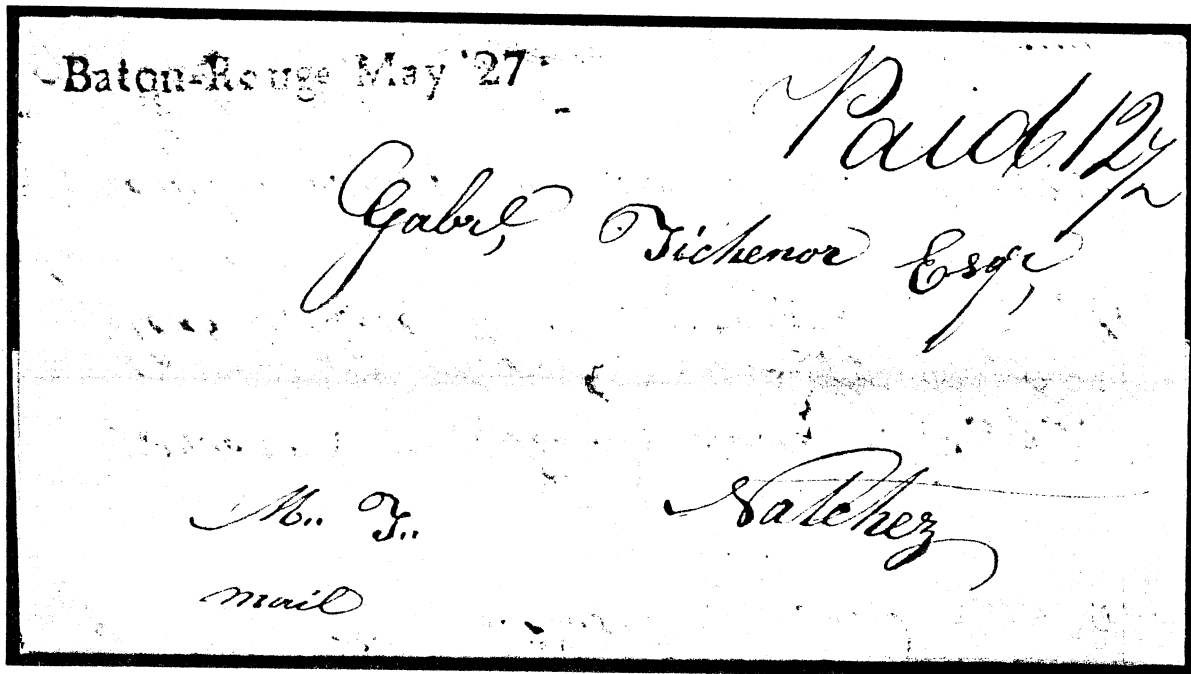 Baton-Rouge May 27
Paid 12½
Gabrl, Tichenor Esqr,
M.. T..
Natchez
mail